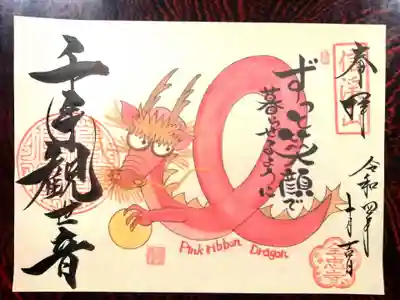 奉拝
令和四年
十月吉日
ずっと笑顔で
暮らせるように
千手観世音
Pink ribbon Dragon